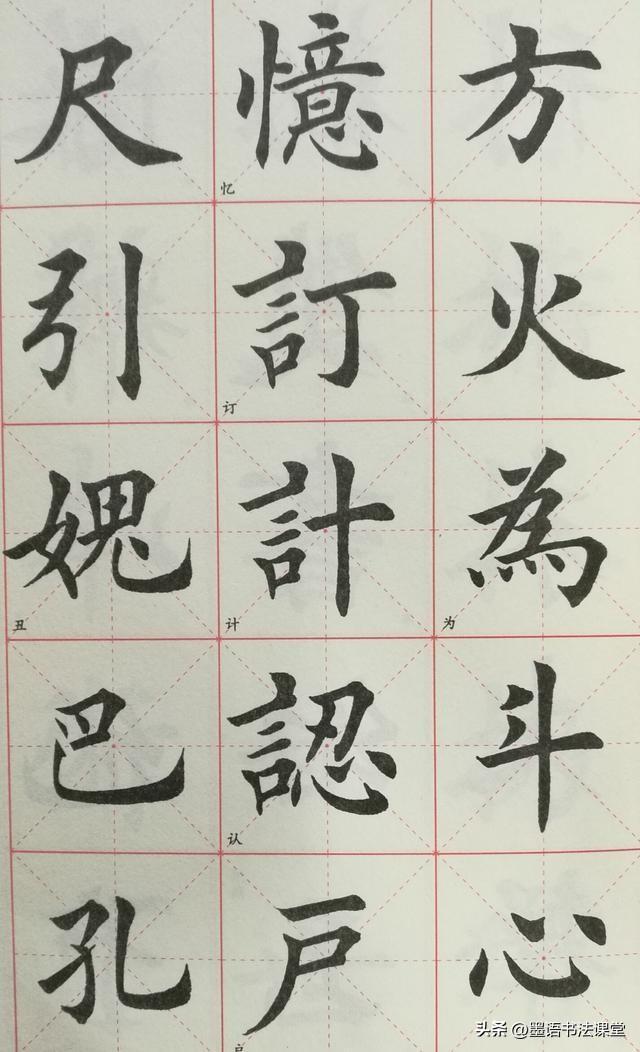 方
火
為
为
斗
心
憶
忆
訂
订
計
计
認
认
戸
尺
引
媿
丑
巴
孔
头条 @墨语书法课堂